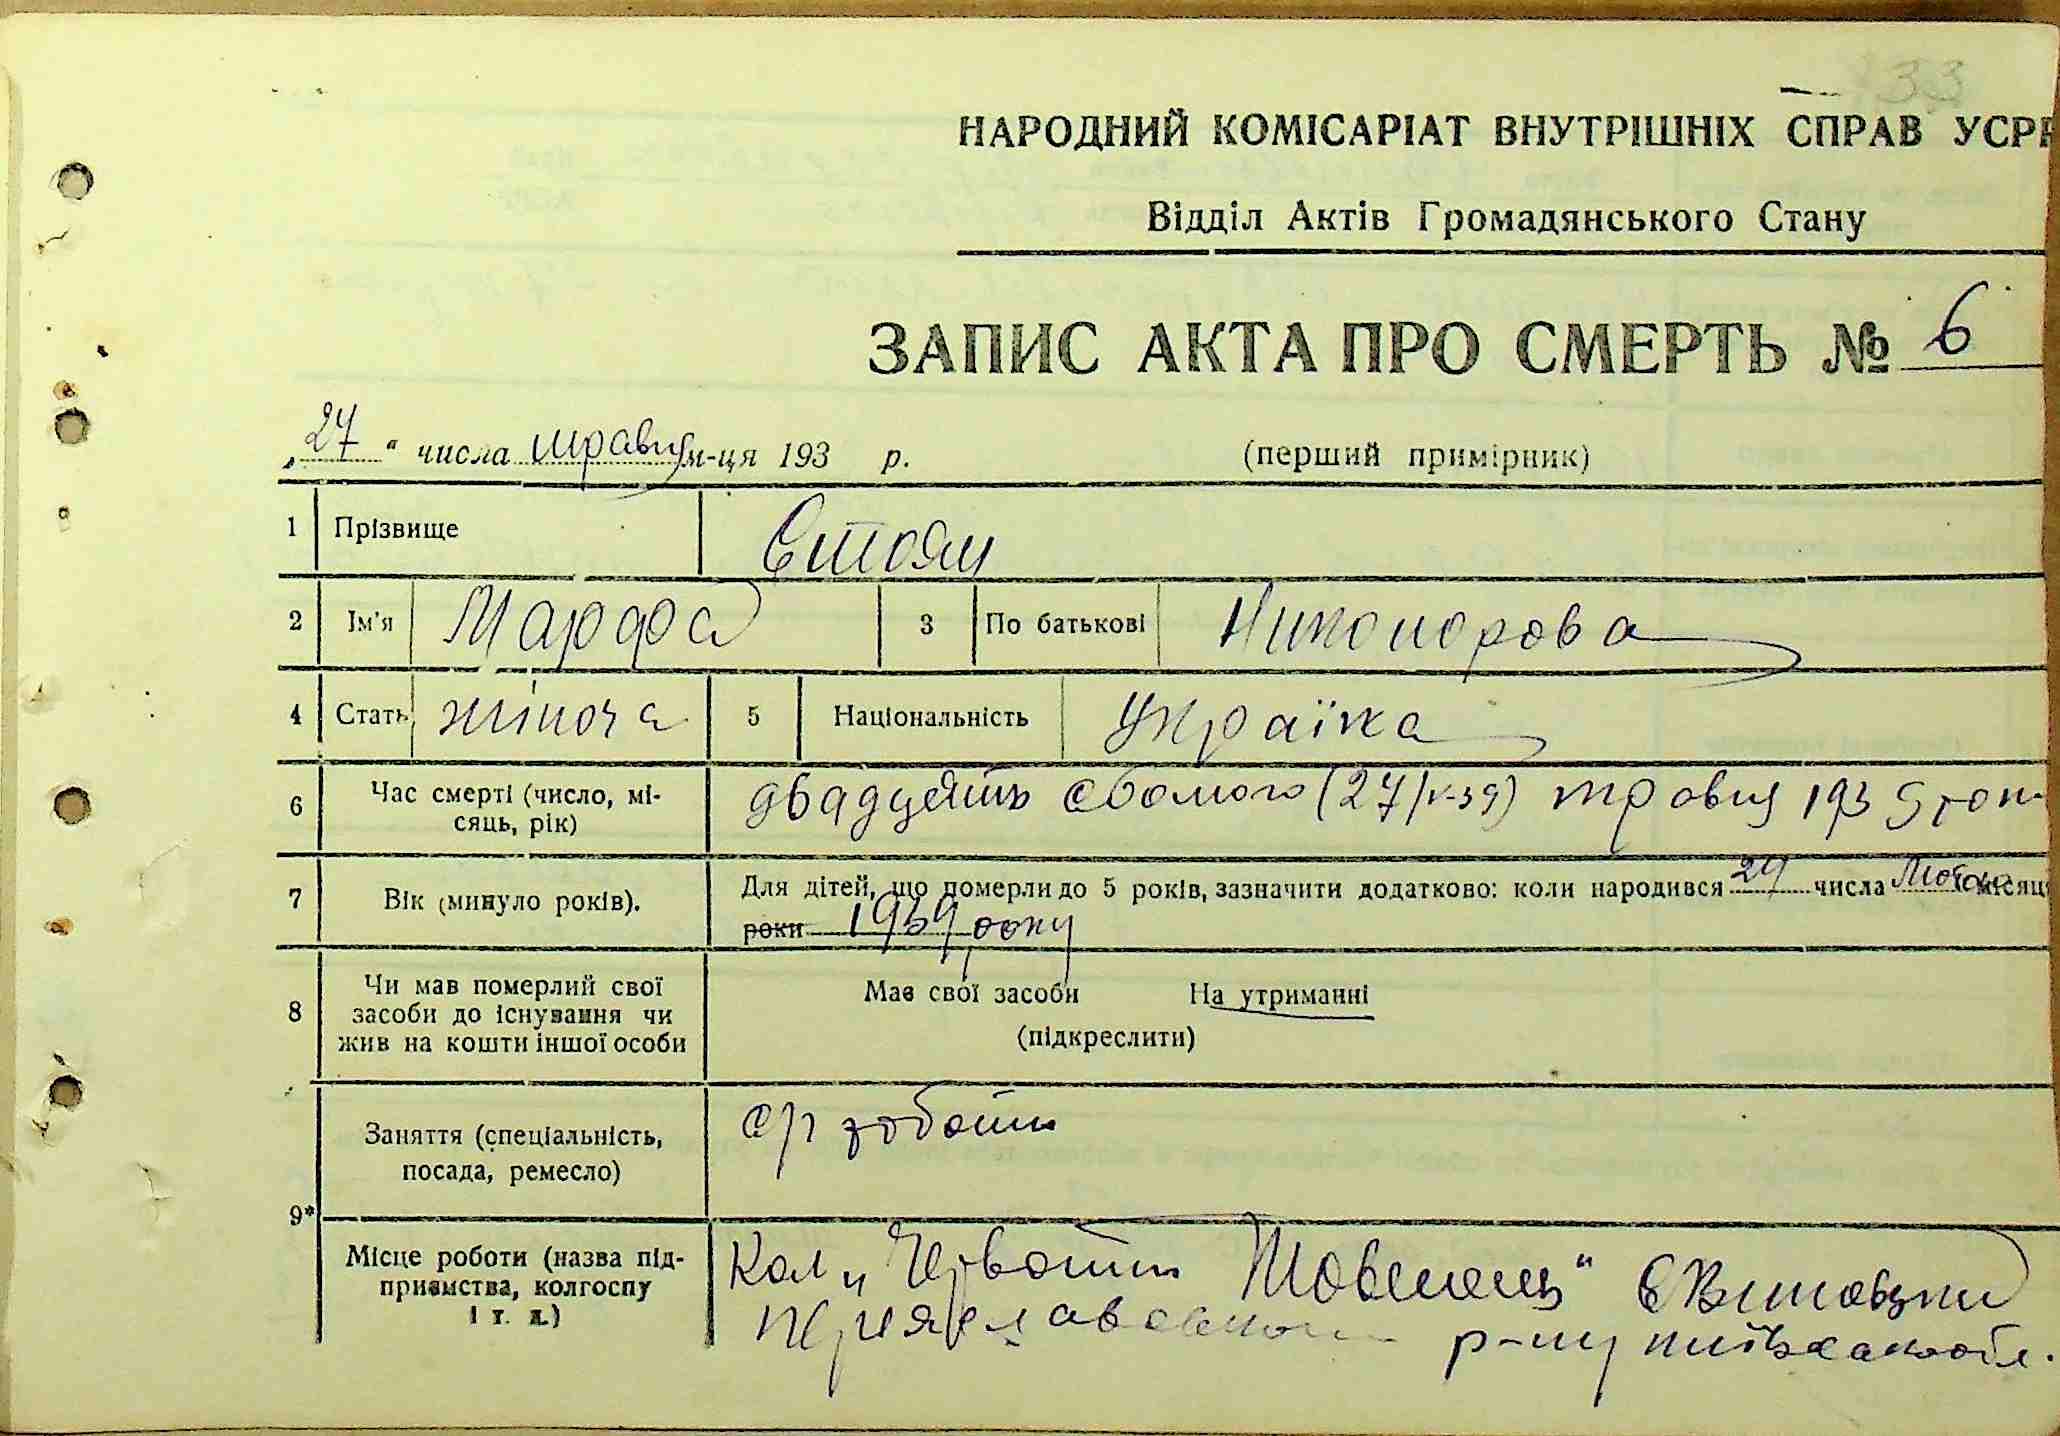 133
НАРОДНИЙ КОМІСАРІАТ ВНУТРІШНІХ СПРАВ УСРР
Відділ Актів Громадянського Стану
ЗАПИС АКТА ПРО СМЕРТЬ № 6
„27“ числа травня м-ця 193 р. (перший примірник)
1 Прізвище Стоян
2 Ім'я Марфа 3 По батькові Никонорова
4 Стать жіноча 5 Національність Українка
6 Час смерті (число, мі-
сяць, рік) двадцять сьомого (27/V-39) травня 1939 рок
7 Вік (минуло років). Для дітей, що померли до 5 років, зазначити додатково: коли народився 24 числа Лютого місяця
роки 1939 року
8 Чи мав померлий свої
засоби до існування чи
жив на кошти іншої особи
Має свої засоби На утриманні
(підкреслити)
9*
Заняття (спеціальність,
посада, ремесло) с/г роботи
Місце роботи (назва під-
приємства, колгоспу
і т. д.)
Кол „Червоний " с
р-ну київської обл.